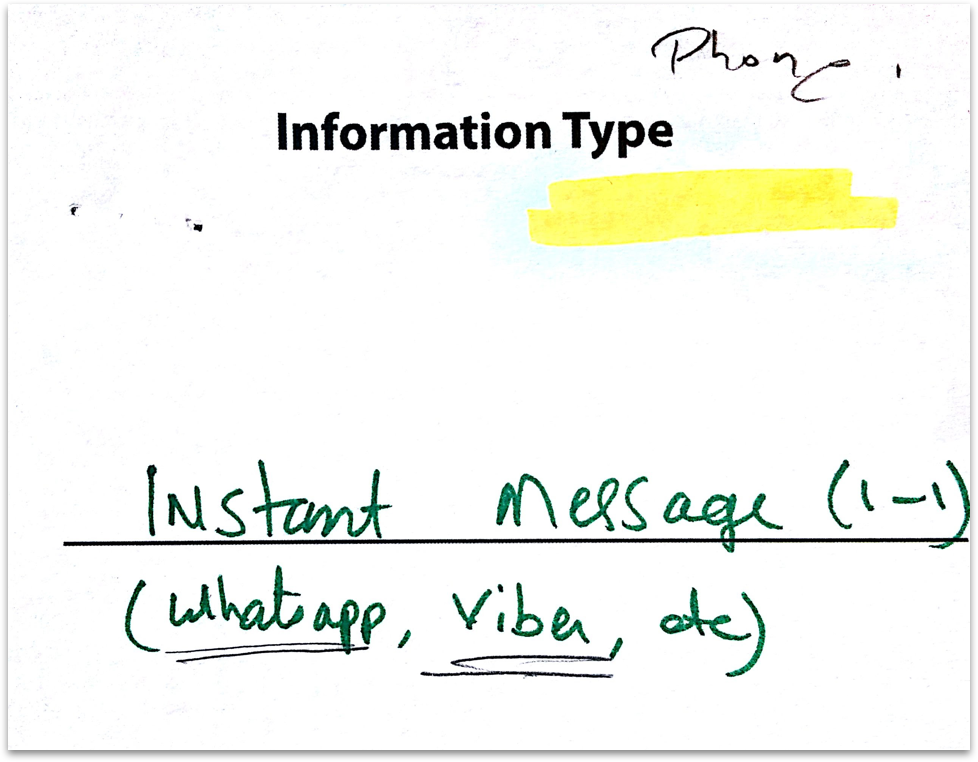 Phone.
Information Type
Instant Message (1-1)
(whatsapp, Viber, etc)